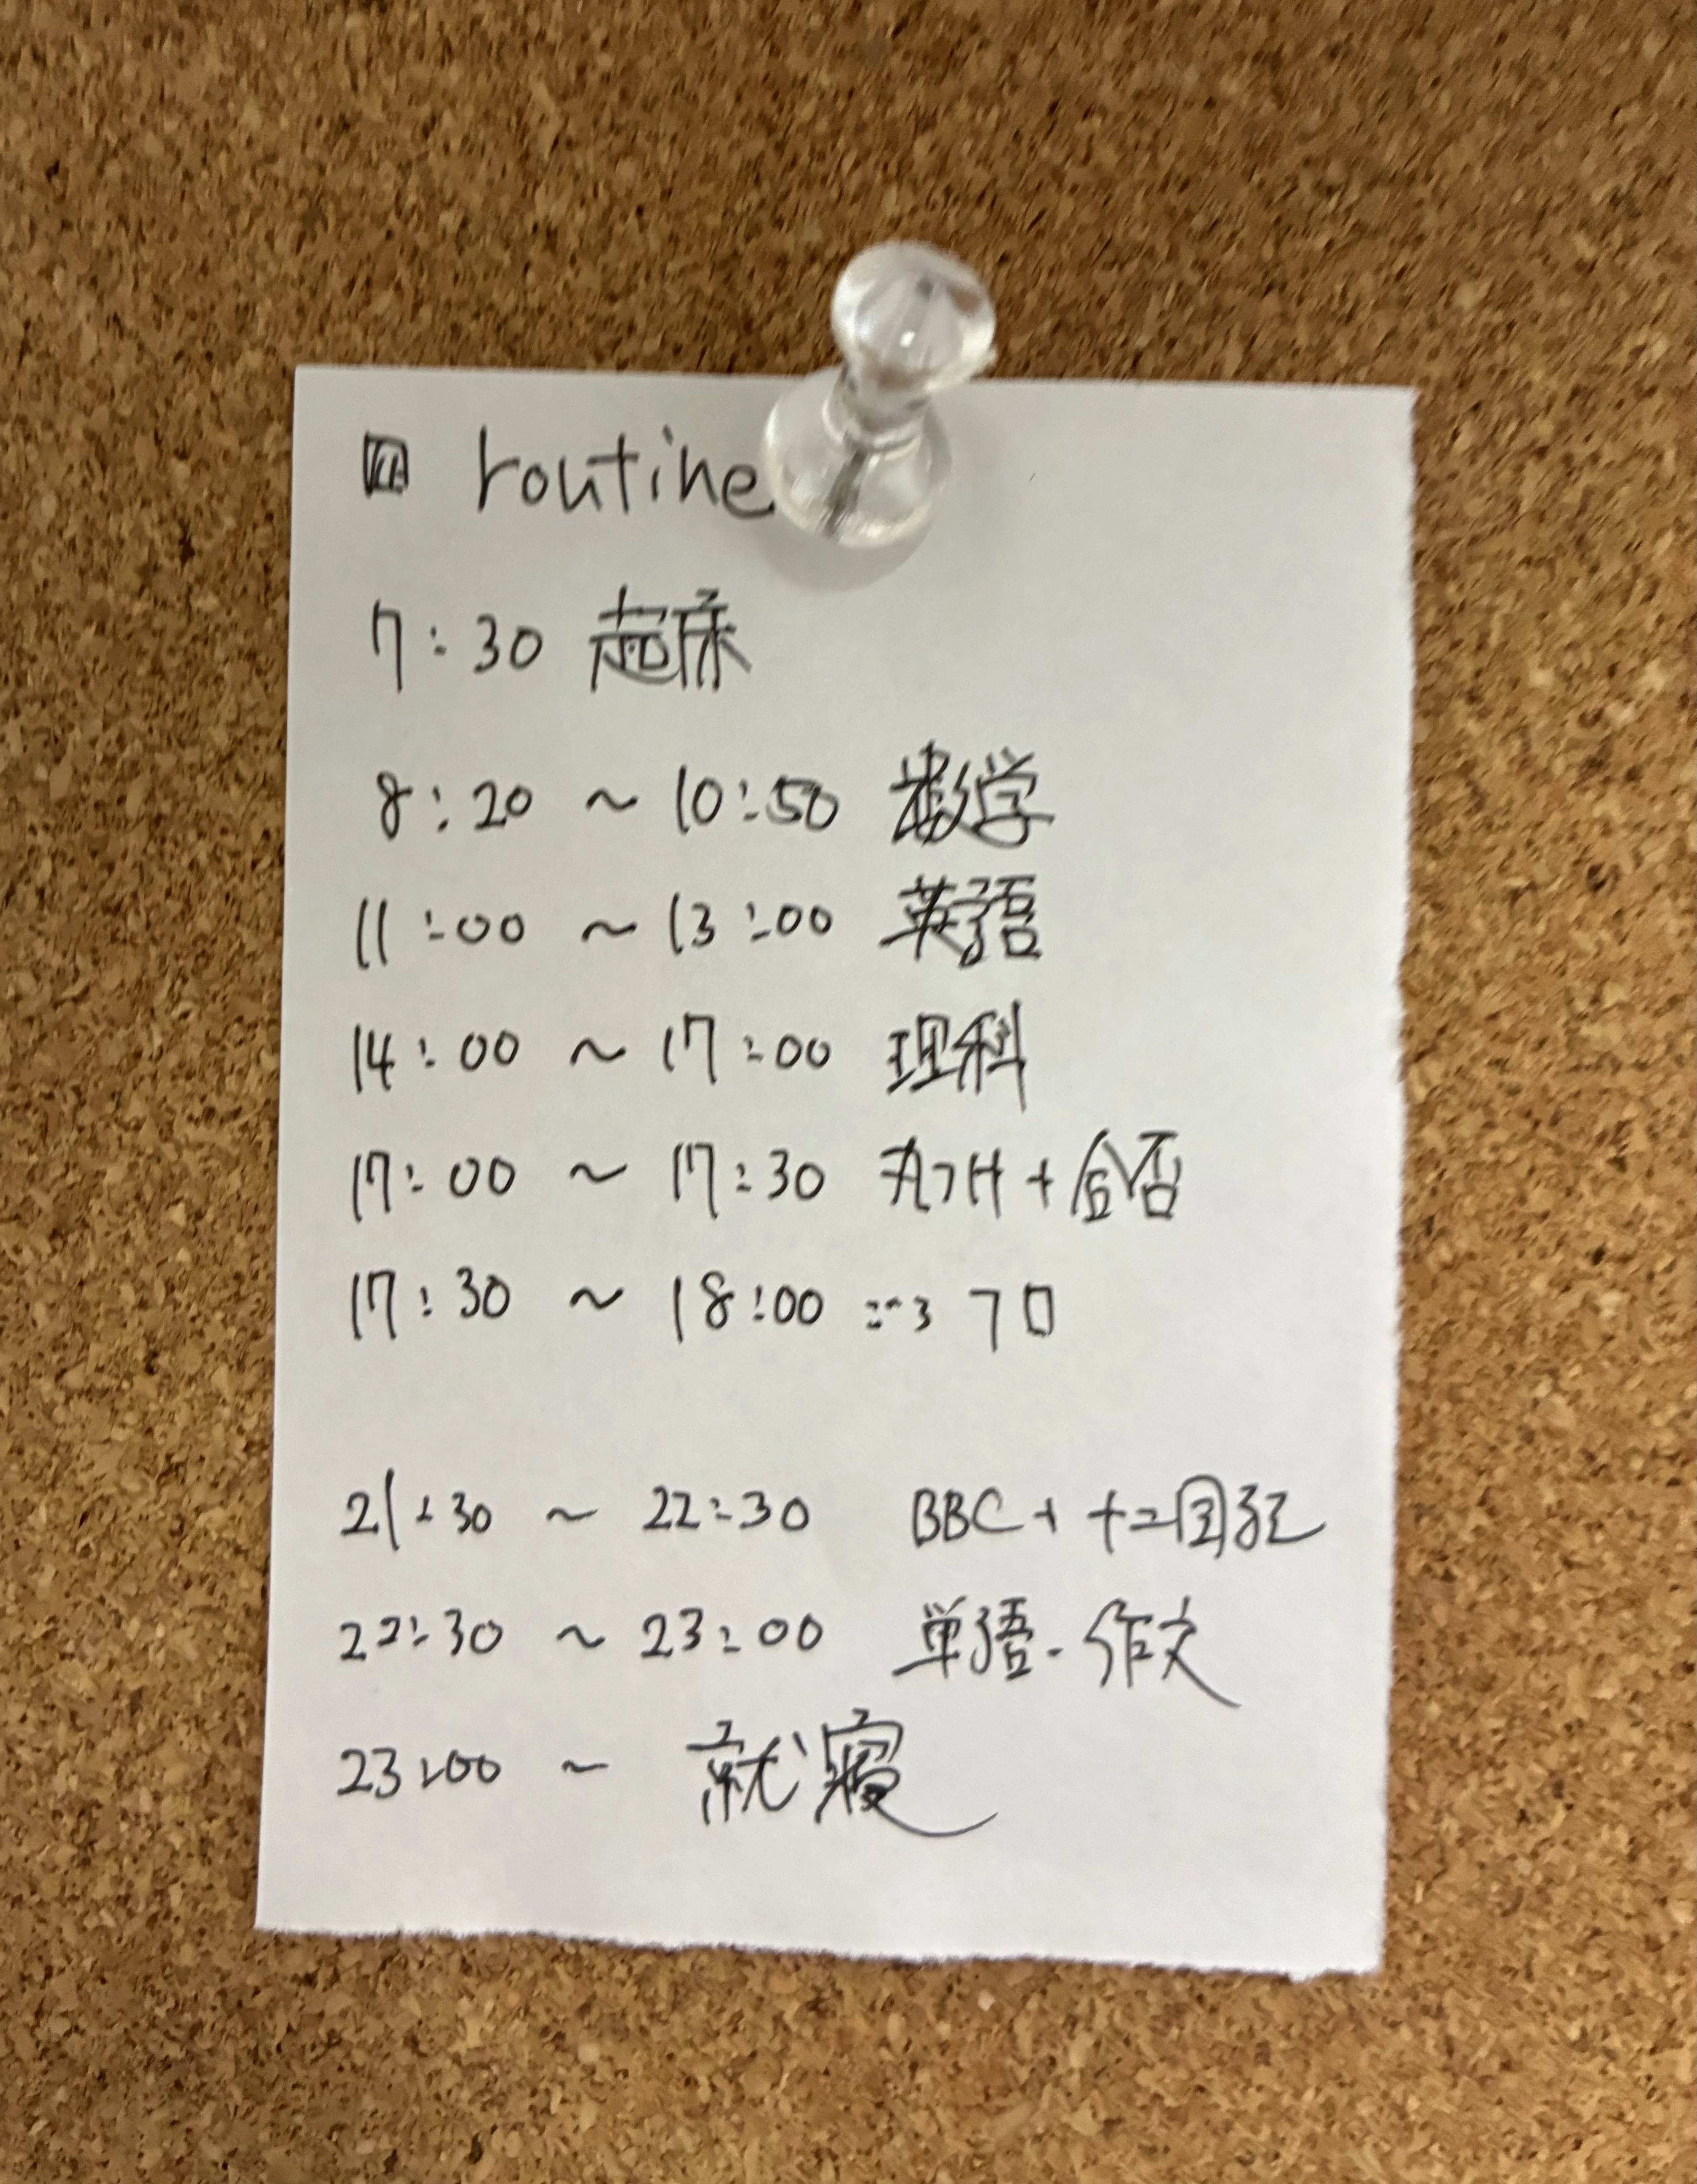 routine
7:30 起床
8:20 ～ 10:50 数学
11:00 ～ 13:00 英語
14:00 ～ 17:00 理科
17:00 ～ 17:30 丸付け + 合否
17:30 ～ 18:00 フロ
21:30 ～ 22:30 BBC + 十二国記
22:30 ～ 23:00 単語・作文
23:00 ～ 就寝